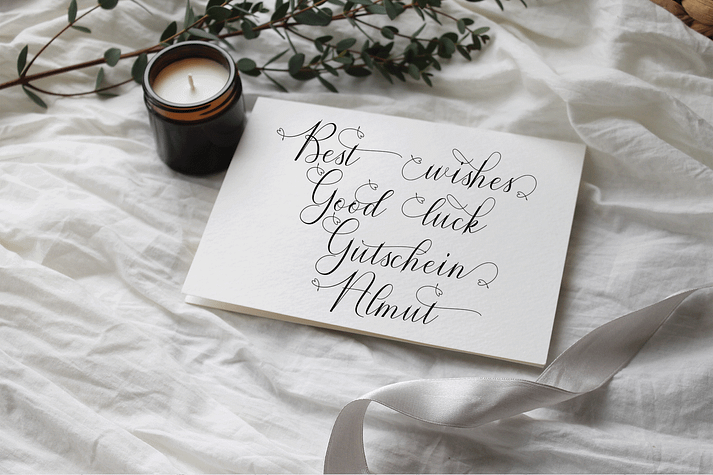 Best wishes
Good luck
Gutschein
Almut